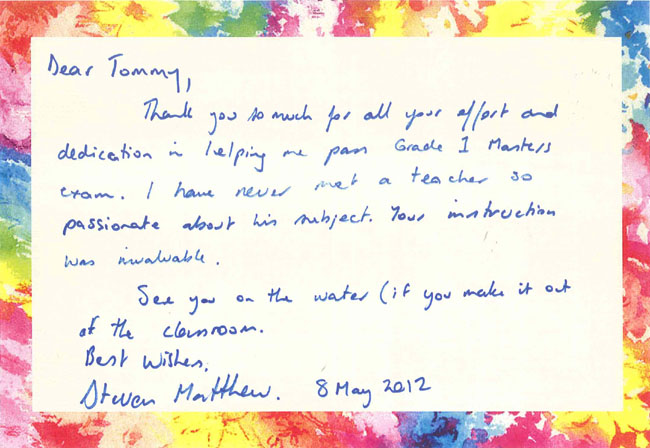 Dear Tommy,
Thank you so much for all your effort and
dedication in helping me pass Grade 1 Masters
exam. I have never met a teacher so
passionate about his subject. Your instruction
was invaluable.
See you on the water (if you make it out
of the classroom.
Best Wishes,
Steven Martthew. 8 May 2012